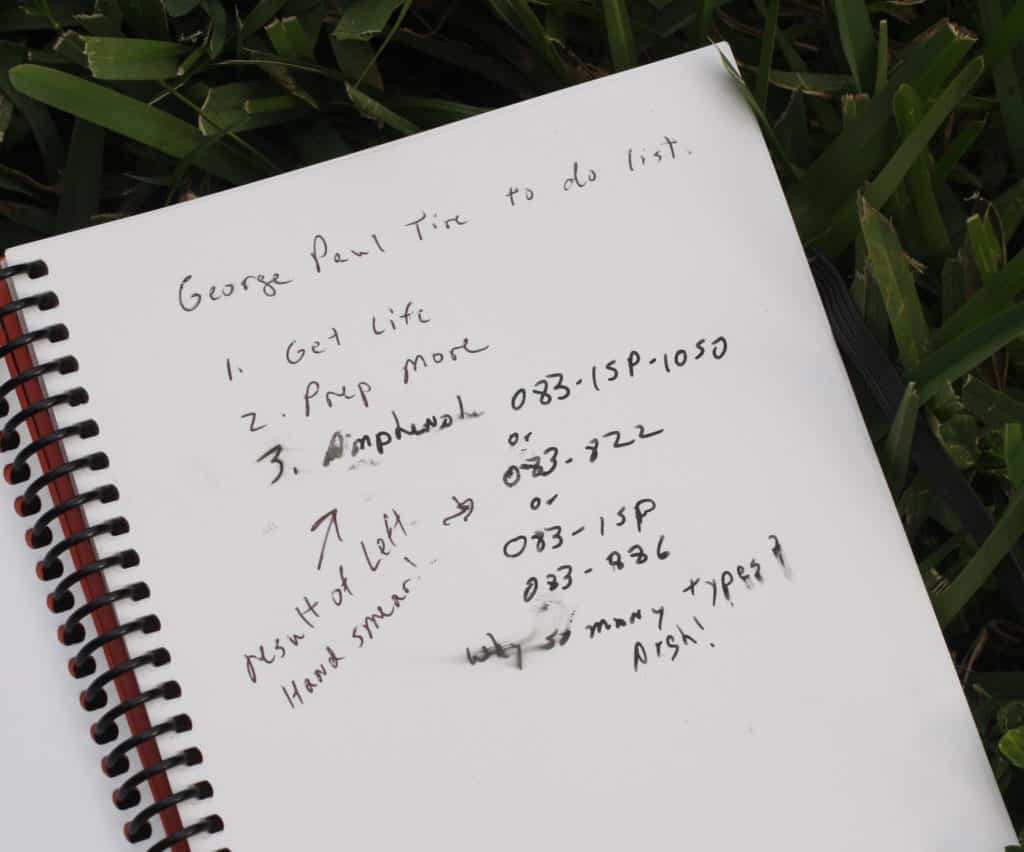 George Paul Tire to do list.
1. Get Life
2. Prep more
3. Amphenol 083-1SP-1050
or
083-822
or
083-1SP
083-886
Why so many types?
Argh!
result of Left
Hand smear!